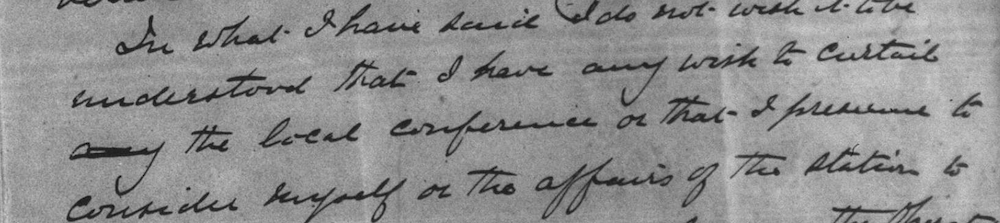 In what I have said I do not wish it to be
understood that I have any wish to curtail
any the local conference or that I presume to
consider myself or the affairs of the station to
the